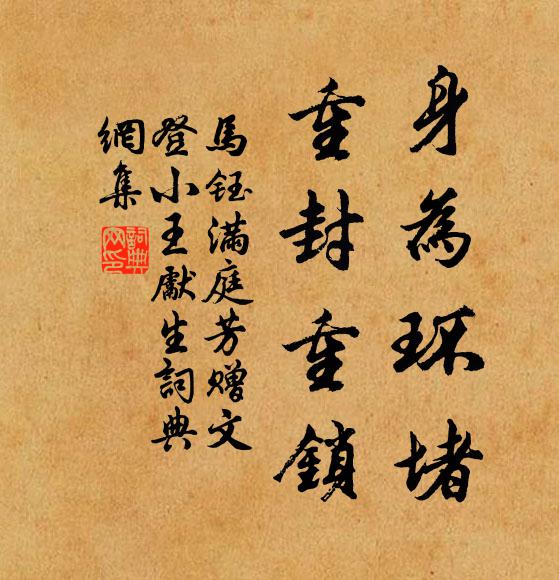 身為环堵
重封重鎖
馬鈺滿庭芳贈文
登小王獻生詞典
網集
詞典网印